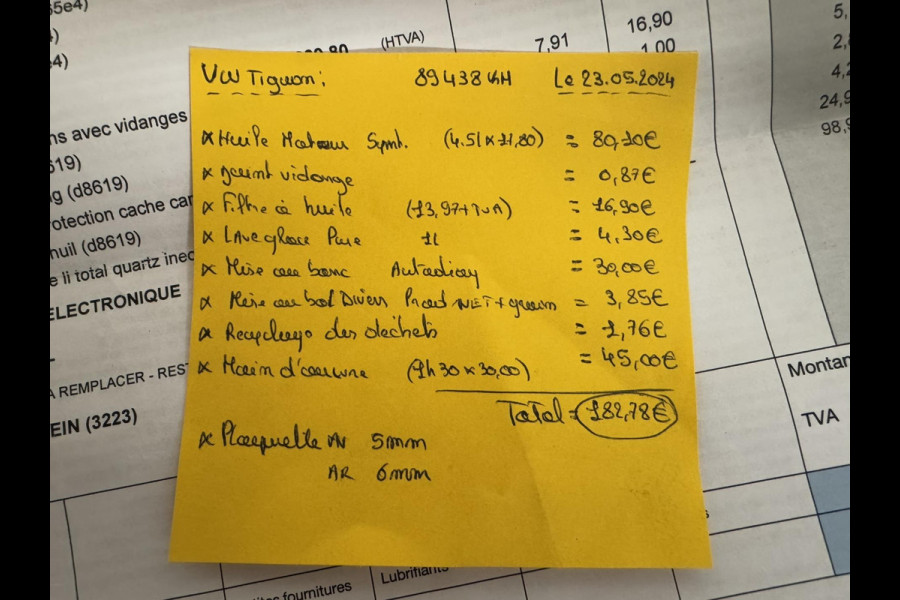 65e4)
e4)
(HTVA)
7,91
16,90
1,00
5,
24,9
98,9
ns avec vidanges
619)
g (d8619)
rotection cache car
nuil (d8619)
e li total quartz inec
ELECTRONIQUE
A REMPLACER - REST
EIN (3223)
VW Tiguan: 89438 KM Le 23.05.2024
× Huile Moteur Synt. (4.5l × 17,80) = 80,10€
× Joint vidange = 0,87€
× Filtre à huile (13,97+TVA) = 16,90€
× Lave glace Pure 1L = 4,30€
× Mise au banc Autodiag = 30,00€
× Mise au bol Divers Prod NET + = 3,85€
× Recyclage des déchets = 1,76€
× Main d'oeuvre (1h30 × 30,00) = 45,00€
Total = 182,78€
× Plaquette AV 5mm
AR 6mm
Montan
TVA
ites fournitures
Lubrifiants